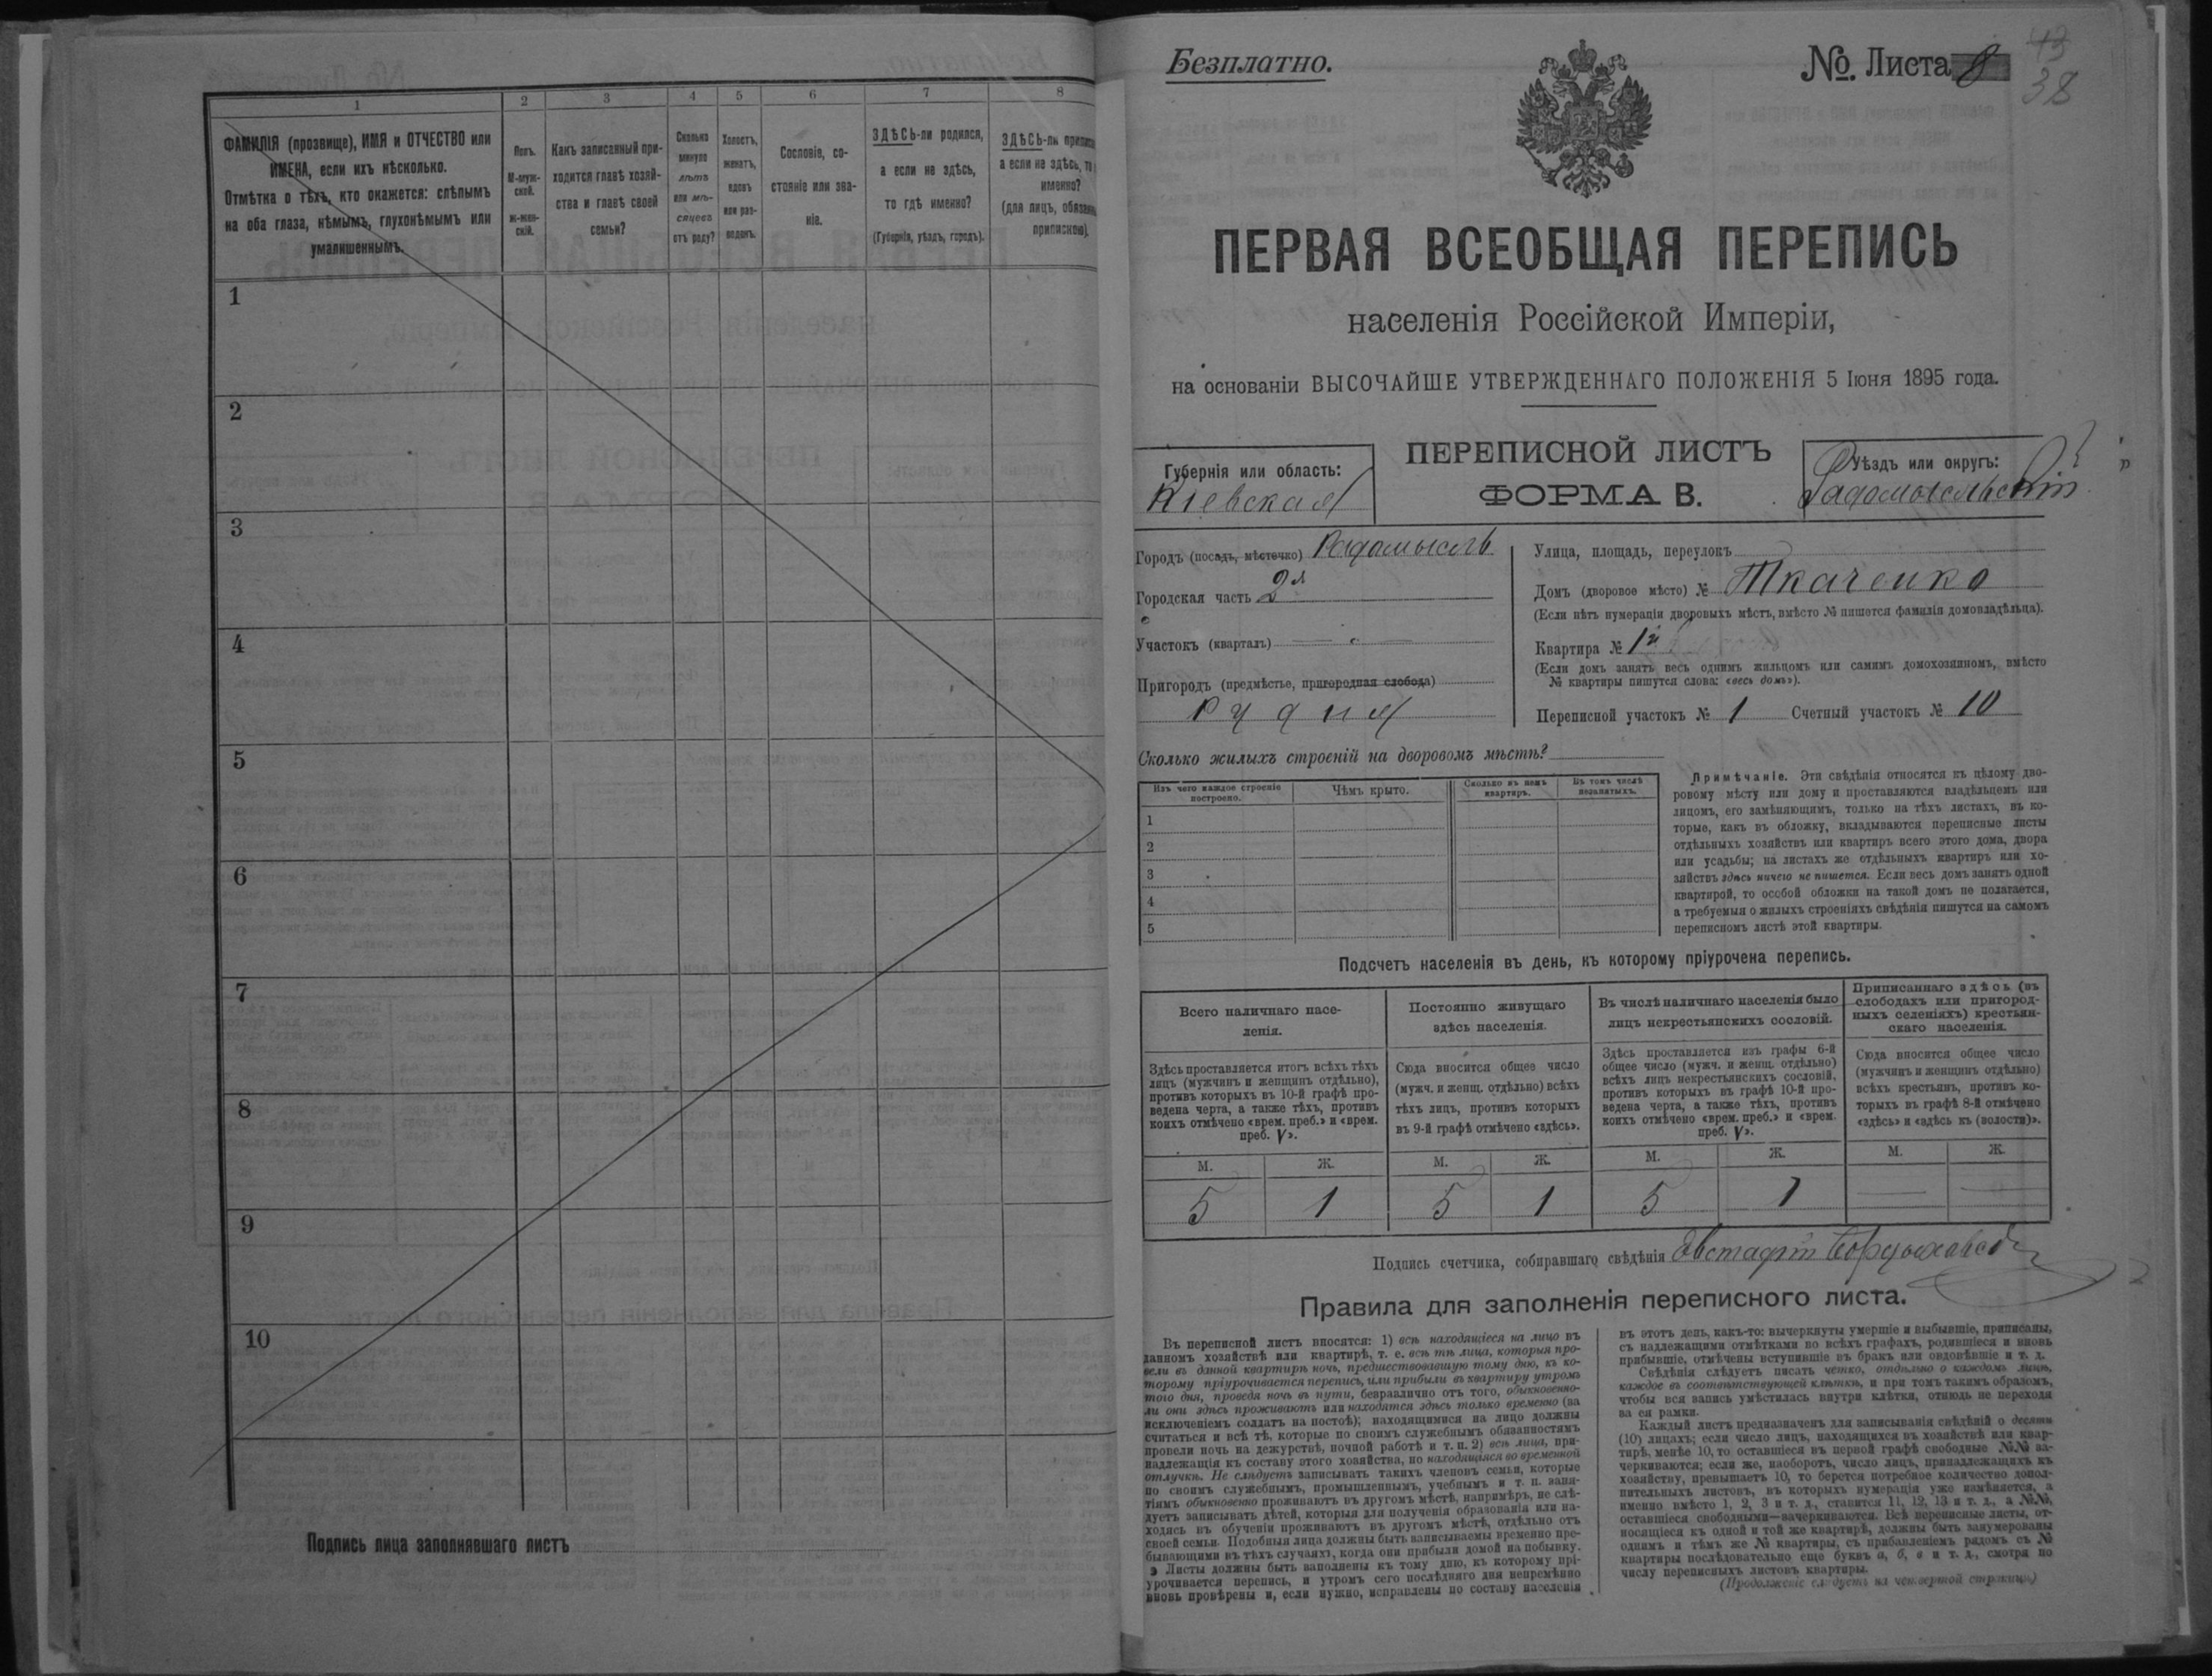 1 2 3 4 5 6 7 8
ФАМИЛІЯ (прозвище), ИМЯ и ОТЧЕСТВО или
ИМЕНА, если ихъ нѣсколько.
Отмѣтка о тѣхъ, кто окажется: слѣпымъ
на оба глаза, нѣмымъ, глухонѣмымъ или
умалишеннымъ.
Полъ.
М-муж-
ской.
ж-жен-
скій.
Какъ записанный при-
ходится главѣ хозяй-
ства и главѣ своей
семьи?
Сколько
минуло
лѣтъ
или мѣ-
сяцевъ
отъ роду?
Холостъ,
женатъ,
вдовъ
или раз-
веденъ.
Сословіе, со-
стояніе или зва-
ніе.
ЗДѢСЬ-ли родился,
а если не здѣсь,
то гдѣ именно?
(Губернія, уѣздъ, городъ).
ЗДѢСЬ-ли
а если не здѣсь,
именно?
(для лицъ,
припискою).
1
2
3
4
5
6
7
8
9
10
Подпись лица заполнявшаго листъ
Безплатно.
№ Листа 8
43
38
ПЕРВАЯ ВСЕОБЩАЯ ПЕРЕПИСЬ
населенія Россійской Имперіи,
на основаніи ВЫСОЧАЙШЕ УТВЕРЖДЕННАГО ПОЛОЖЕНІЯ 5 Іюня 1895 года.
Губернія или область:
Кіевская
ПЕРЕПИСНОЙ ЛИСТЪ
ФОРМА В.
Уѣздъ или округъ:
Радомысльскій
Городъ (посадъ, мѣстечко) Радомысль
Городская часть 2я
Участокъ (кварталъ)
Пригородъ (предмѣстье, пригородная слобода)
Рудня
Улица, площадь, переулокъ
Домъ (дворовое мѣсто) № Ткаченко
(Если нѣтъ нумераціи дворовыхъ мѣстъ, вмѣсто № пишется фамилія домовладѣльца).
Квартира № 1й
(Если домъ занятъ весь однимъ жильцомъ или самимъ домохозяиномъ, вмѣсто
№ квартиры пишутся слова: «весь домъ»).
Переписной участокъ № 1 Счетный участокъ № 10
Сколько жилыхъ строеній на дворовомъ мѣстѣ?
Изъ чего каждое строеніе
построено.
Чѣмъ крыто.
Сколько въ немъ
квартиръ.
Въ томъ числѣ
незанятыхъ.
1
2
3
4
5
Примѣчаніе. Эти свѣдѣнія относятся къ цѣлому дво-
ровому мѣсту или дому и проставляются владѣльцемъ или
лицомъ, его замѣняющимъ, только на тѣхъ листахъ, въ ко-
торые, какъ въ обложку, вкладываются переписные листы
отдѣльныхъ хозяйствъ или квартиръ всего этого дома, двора
или усадьбы; на листахъ же отдѣльныхъ квартиръ или хо-
зяйствъ здѣсь ничего не пишется. Если весь домъ занятъ одной
квартирой, то особой обложки на такой домъ не полагается,
а требуемыя о жилыхъ строеніяхъ свѣдѣнія пишутся на самомъ
переписномъ листѣ этой квартиры.
Подсчетъ населенія въ день, къ которому пріурочена перепись.
Всего наличнаго насе-
ленія.
Постоянно живущаго
здѣсь населенія.
Въ числѣ наличнаго населенія было
лицъ некрестьянскихъ сословій.
Приписаннаго здѣсь (въ
слободахъ или пригород-
ныхъ селеніяхъ) крестьян-
скаго населенія.
Здѣсь проставляется итогъ всѣхъ тѣхъ
лицъ (мужчинъ и женщинъ отдѣльно),
противъ которыхъ въ 10-й графѣ про-
ведена черта, а также тѣхъ, противъ
коихъ отмѣчено «врем. преб.» и «врем.
преб. V».
Сюда вносится общее число
(мужч. и женщ. отдѣльно) всѣхъ
тѣхъ лицъ, противъ которыхъ
въ 9-й графѣ отмѣчено «здѣсь».
Здѣсь проставляется изъ графы 6-й
общее число (мужч. и женщ. отдѣльно)
всѣхъ лицъ некрестьянскихъ сословій,
противъ которыхъ въ графѣ 10-й про-
ведена черта, а также тѣхъ, противъ
коихъ отмѣчено «врем. преб.» и «врем.
преб. V».
Сюда вносится общее число
(мужчинъ и женщинъ отдѣльно)
всѣхъ крестьянъ, противъ ко-
торыхъ въ графѣ 8-й отмѣчено
«здѣсь» и «здѣсь къ (волости)».
М. Ж. М. Ж. М. Ж. М. Ж.
5 1 5 1 5 1 — —
Подпись счетчика, собиравшаго свѣдѣнія Евстафій
Правила для заполненія переписного листа.
Въ переписной листъ вносятся: 1) всѣ находящіеся на лицо въ
данномъ хозяйствѣ или квартирѣ, т. е. всѣ тѣ лица, которыя про-
вели въ данной квартирѣ ночь, предшествовавшую тому дню, къ ко-
торому пріурочивается перепись, или прибыли въ квартиру утромъ
того дня, проведя ночь въ пути, безразлично отъ того, обыкновенно-
ли они здѣсь проживаютъ или находятся здѣсь только временно (за
исключеніемъ солдатъ на постоѣ); находящимися на лицо должны
считаться и всѣ тѣ, которые по своимъ служебнымъ обязанностямъ
провели ночь на дежурствѣ, ночной работѣ и т. п. 2) всѣ лица, при-
надлежащія къ составу этого хозяйства, но находящіяся во временной
отлучкѣ. Не слѣдуетъ записывать такихъ членовъ семьи, которые
по своимъ служебнымъ, промышленнымъ, учебнымъ и т. п. заня-
тіямъ обыкновенно проживаютъ въ другомъ мѣстѣ, напримѣръ, не слѣ-
дуетъ записывать дѣтей, которыя для полученія образованія или на-
ходясь въ обученіи проживаютъ въ другомъ мѣстѣ, отдѣльно отъ
своей семьи. Подобныя лица должны быть записываемы временно пре-
бывающими въ тѣхъ случаяхъ, когда они прибыли домой на побывку.
Листы должны быть заполнены къ тому дню, къ которому прі-
урочивается перепись, и утромъ сего послѣдняго дня непремѣнно
вновь провѣрены и, если нужно, исправлены по составу населенія
въ этотъ день, какъ-то: вычеркнуты умершіе и выбывшіе, приписаны,
съ надлежащими отмѣтками во всѣхъ графахъ, родившіеся и вновь
прибывшіе, отмѣчены вступившіе въ бракъ или овдовѣвшіе и т. д.
Свѣдѣнія слѣдуетъ писать четко, отдѣльно о каждомъ лицѣ,
каждое въ соотвѣтствующей клѣткѣ, и при томъ такимъ образомъ,
чтобы вся запись умѣстилась внутри клѣтки, отнюдь не переходя
за ея рамки.
Каждый листъ предназначенъ для записыванія свѣдѣній о десяти
(10) лицахъ; если число лицъ, находящихся въ хозяйствѣ или квар-
тирѣ, менѣе 10, то оставшіеся въ первой графѣ свободные №№ за-
черкиваются; если же, наоборотъ, число лицъ, принадлежащихъ къ
хозяйству, превышаетъ 10, то берется потребное количество допол-
нительныхъ листовъ, въ которыхъ нумерація уже измѣняется, а
именно вмѣсто 1, 2, 3 и т. д., ставится 11, 12, 13 и т. д., а №№,
оставшіеся свободными—зачеркиваются. Всѣ переписные листы, от-
носящіеся къ одной и той же квартирѣ, должны быть занумерованы
однимъ и тѣмъ же № квартиры, съ прибавленіемъ рядомъ съ №
квартиры послѣдовательно еще буквъ а, б, в и т. д., смотря по
числу переписныхъ листовъ квартиры.
(Продолженіе слѣдуетъ на четвертой страницѣ)